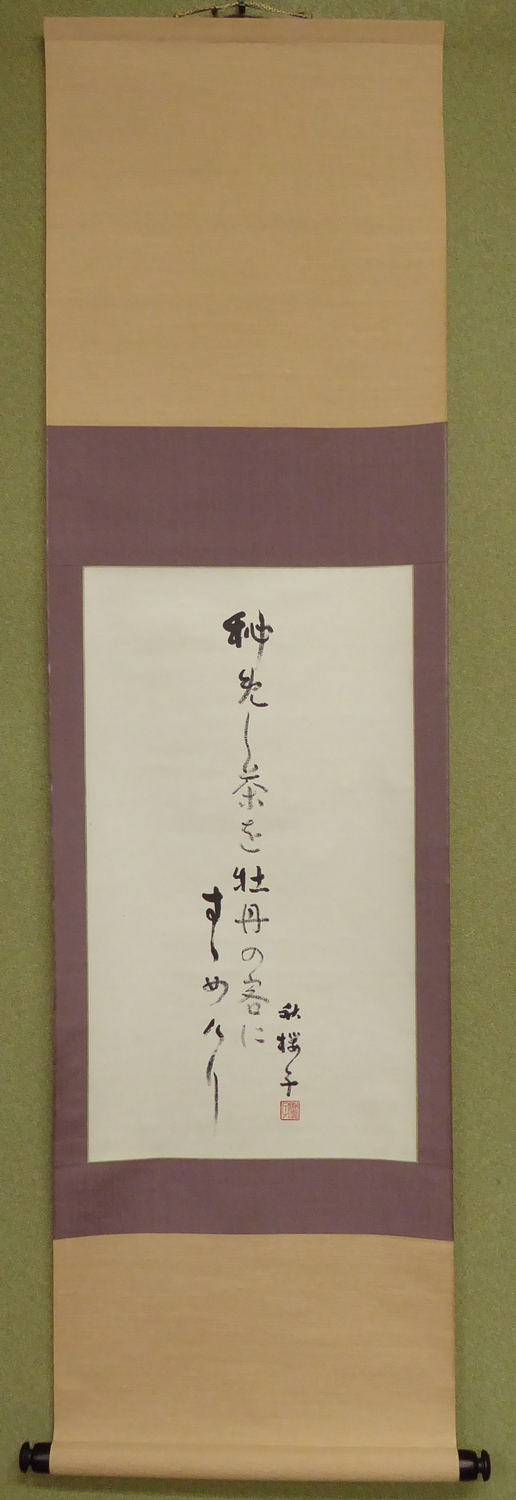 秘めし茶を牡丹の客に
すゝめけり
秋櫻子